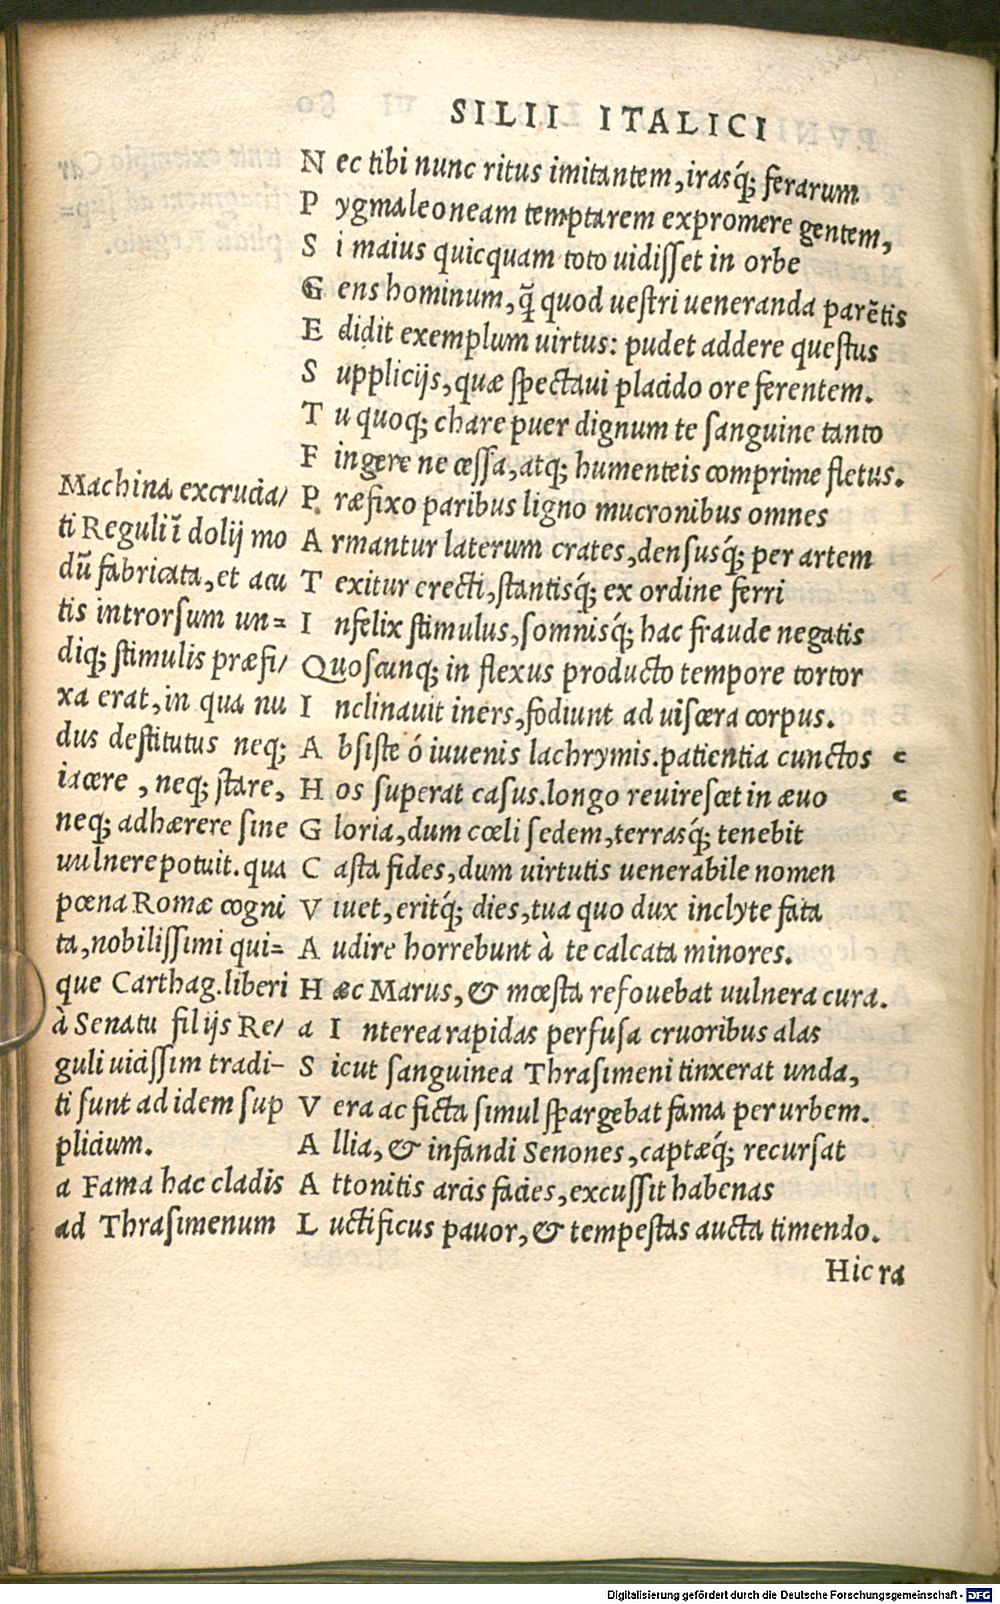 SILII ITALICI
N ec tibi nunc ritus imitantem, irasq́; ferarum
P ygmaleoneam temptarem expromere gentem,
S i maius quicquam toto uidisset in orbe
G ens hominum, q̃ quod uestri ueneranda parẽtis
E didit exemplum uirtus: pudet addere questus
S upplicijs, quæ spectaui placido ore ferentem.
T u quoq; chare puer dignum te sanguine tanto
F ingere ne cessa, atq; humenteis comprime fletus.
P ræfixo paribus ligno mucronibus omnes
A rmantur laterum crates, densusq́; per artem
T exitur erecti, stantisq́; ex ordine ferri
I nfelix stimulus, somnisq́; hac fraude negatis
Quoscunq; in flexus producto tempore tortor
I nclinauit iners, fodiunt ad uiscera corpus.
A bsiste ó iuuenis lachrymis. patientia cunctos c
H os superat casus. longo reuirescet in æuo c
G loria, dum cœli sedem, terrasq́; tenebit
C asta fides, dum uirtutis uenerabile nomen
V iuet, eritq́; dies, tua quo dux inclyte fata
A udire horrebunt à te calcata minores.
H æc Marus, & mœsta refouebat uulnera cura.
a I nterea rapidas perfusa cruoribus alas
S icut sanguinea Thrasimeni tinxerat unda,
V era ac ficta simul spargebat fama per urbem.
A llia, & infandi Senones, captæq́; recursat
A ttonitis arcis facies, excussit habenas
L uctificus pauor, & tempestas aucta timendo.
Hic ra
Machina excrucia/
ti Reguli ĩ dolij mo
dũ fabricata, et acu
tis introrsum un=
diq; stimulis præfi/
xa erat, in qua nu
dus destitutus neq;
iacere, neq; stare,
neq; adhærere sine
uulnere potuit. qua
pœna Romæ cogni
ta, nobilissimi qui=
que Carthag. liberi
à Senatu filijs Re/
guli uicissim tradi-
ti sunt ad idem sup
plicium.
a Fama hac cladis
ad Thrasimenum
Digitalisierung gefördert durch die Deutsche Forschungsgemeinschaft - DFG